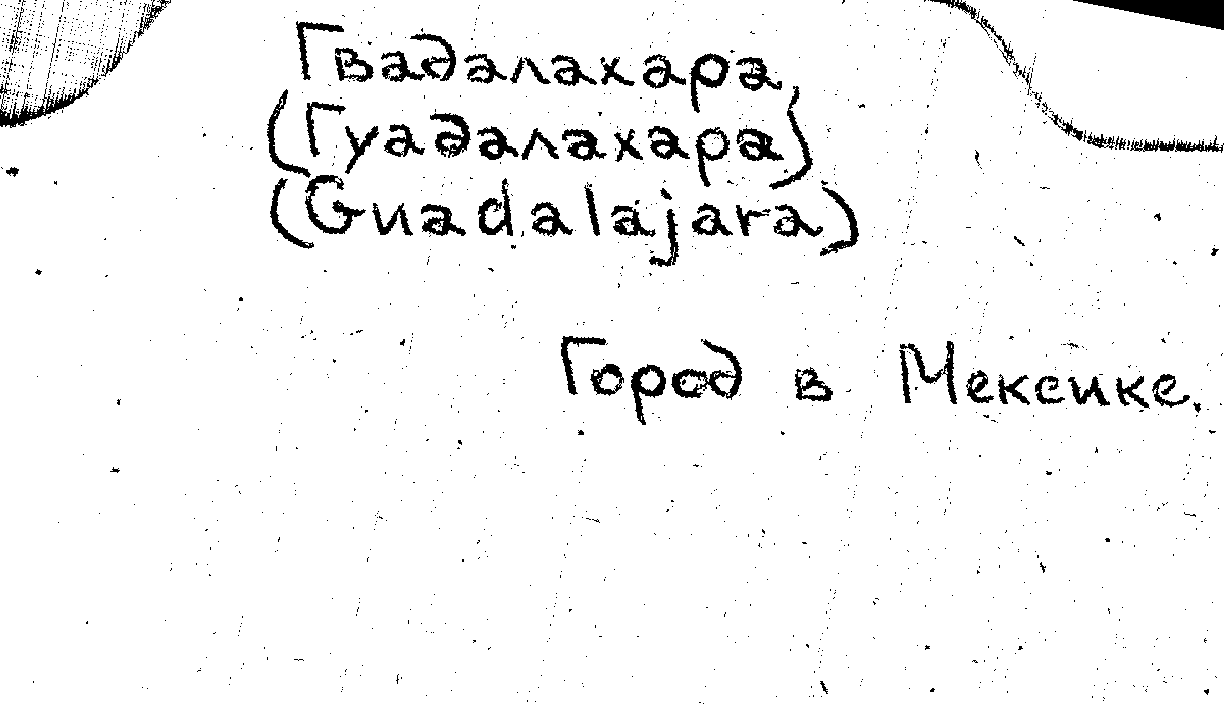 Гвадалахара,
(Гуадалахара)
(Guadalajara)
Город в Мексике.